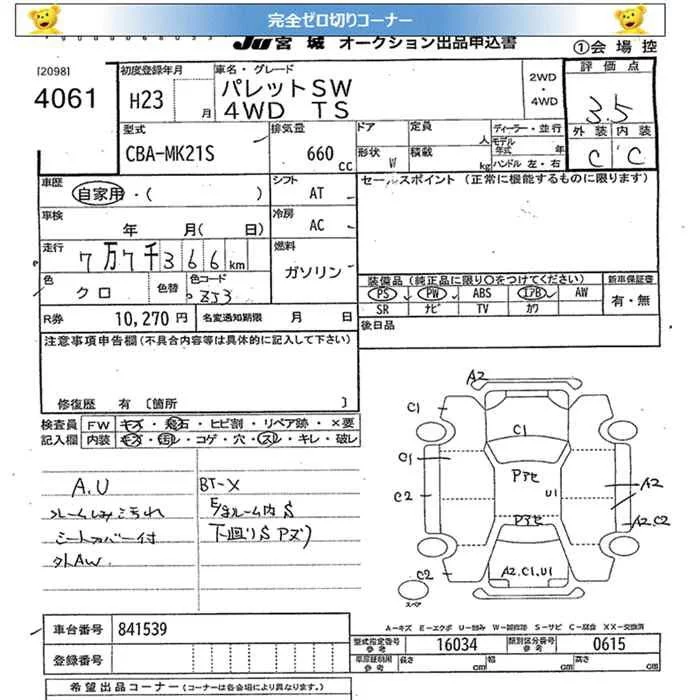 完全ゼロ切りコーナー
JU宮城 オークション出品申込書
①会場控
[2098]
4061
初度登録年月
H23 月
車名・グレード
パレットSW
4WD TS
2WD
・
4WD
評価点
3.5
外装 内装
C C
型式
CBA-MK21S
排気量
660 cc
ドア
形状 W
定員 人
積載 kg
ディーラー・並行
モデル年式 年
ハンドル 左・右
車歴
自家用・( )
シフト
AT
セールスポイント (正常に機能するものに限ります)
車検
年 月( 日)
冷房
AC
走行
7万7千366km
燃料
ガソリン
色
クロ
色替
色コード
ZJ3
装備品(純正品に限り〇をつけてください)
PS PW ABS エアB AW
SR ナビ TV カワ
新車保証書
有・無
R券 10,270円
名変通知期限 月 日
後日品
注意事項申告欄(不具合内容等は具体的に記入して下さい)
修復歴 有 〔箇所 〕
検査員記入欄
FW キズ・飛石・ヒビ割・リペア跡・×要
内装 キズ・汚レ・コゲ・穴・スレ・キレ・破レ
A.U
シートカバー付
外AW
BT-X
E/gルーム内 S
下廻りS アズリ
A2
C1
C1
C1
Pアセ
A2
C2
U1
Pアセ
A2 C2
C2
A2.C1.U1
スペア
A-キズ E-エクボ U-凹み W-補修跡 S-サビ C-腐食 XX-交換済
車台番号 841539
登録番号
型式指定番号 参考 16034
類別区分番号 参考 0615
長さ cm 幅 cm 高さ cm
希望出品コーナー(コーナーは各会場により異なります。)